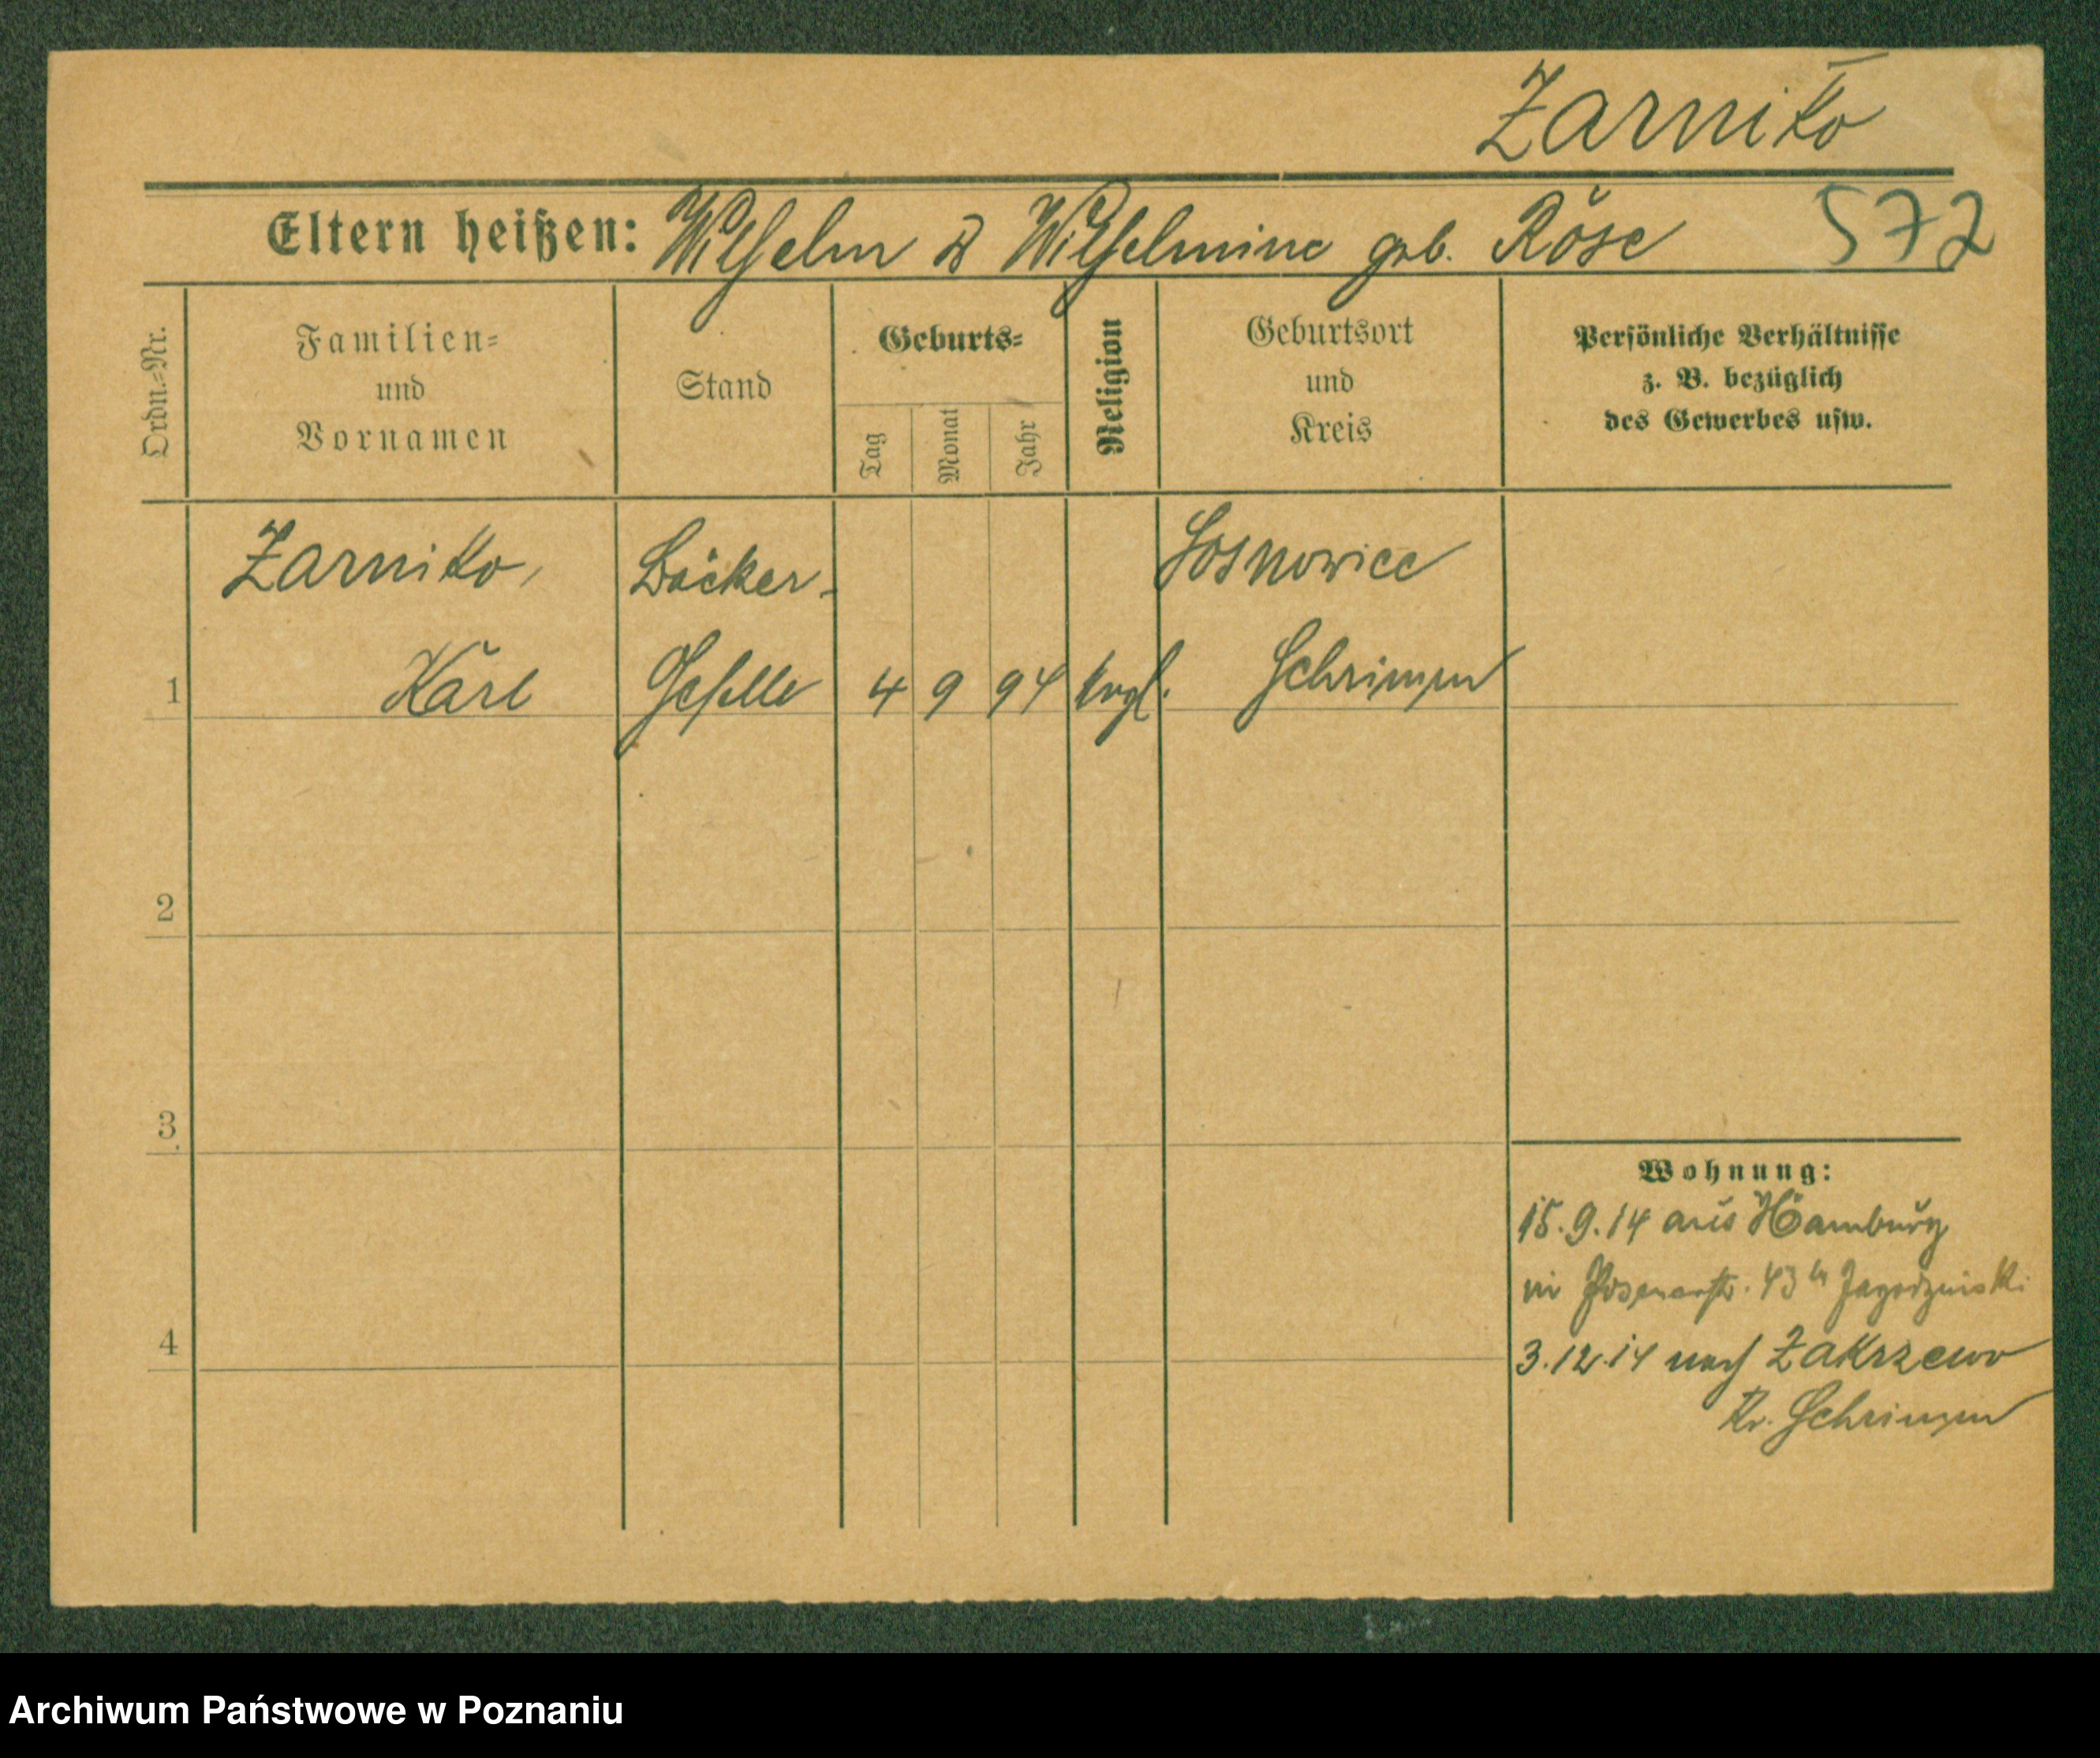 Zarniko
Eltern heißen: Wilhelm & Wilhelmine geb. Röse
572
Ordn.-Nr.
Familien-
und
Vornamen
Stand
Geburts-
Tag
Monat
Jahr
Religion
Geburtsort
und
Kreis
Persönliche Verhältnisse
z. B. bezüglich
des Gewerbes usw.
Zarniko, Bäcker- Sosnowice
1 Karl Geselle 4 9 94 evgl. Schrimm
2
3
4
Wohnung:
15.9.14 aus Hamburg
in Posenerstr. 43 Jagodzinski
3.12.14 nach Zakrzewo
Kr. Schrimm
Archiwum Państwowe w Poznaniu